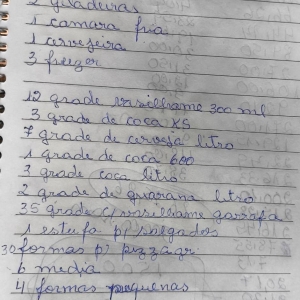 2 geladeiras
1 camara fria
1 cervejeira
3 freezer
12 grade vasilhame 300 mil
3 grade de coca KS
7 grade de cerveja litro
1 grade de coca 600
3 grade coca litro
2 grade de guarana litro
35 grade c/ vasilhame garrafa
1 estufa p/ salgados
30 formas p/ pizza gr.
6 media
4 formas pequenas